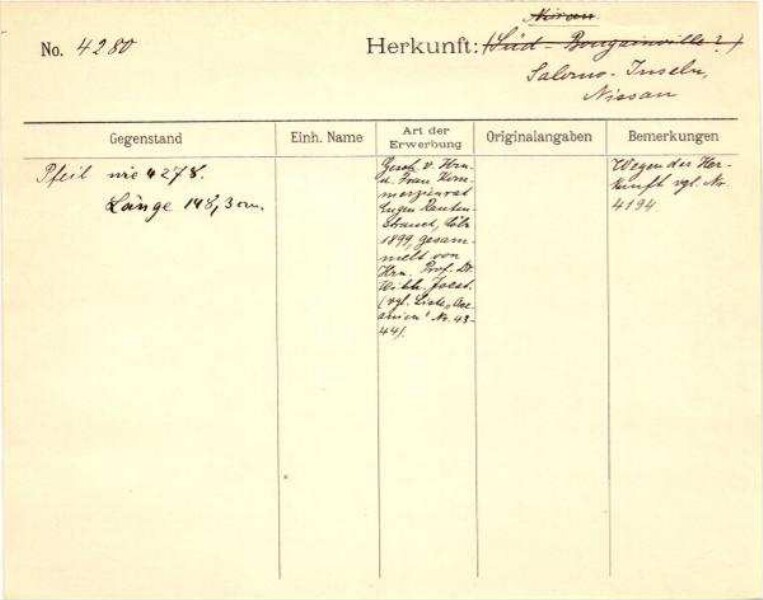 Nissan
No. 4280
Herkunft: (Süd-Bougainville?)
Salomo-Inseln,
Nissan
Gegenstand
Einh. Name
Art der Erwerbung
Originalangaben
Bemerkungen
Pfeil wie 4278.
Länge 148,3 cm.
Gesch. v. Hrn.
u. Frau Kom-
merzienrat
Eugen Rauten-
strauch, Cöln
1899, gesam-
melt von
Hrn. Prof. Dr.
Wilh. Joest.
(vgl. Liste „Oce-
anien" Nr. 43-
44).
Wegen der Her-
kunft vgl. Nr.
4194.